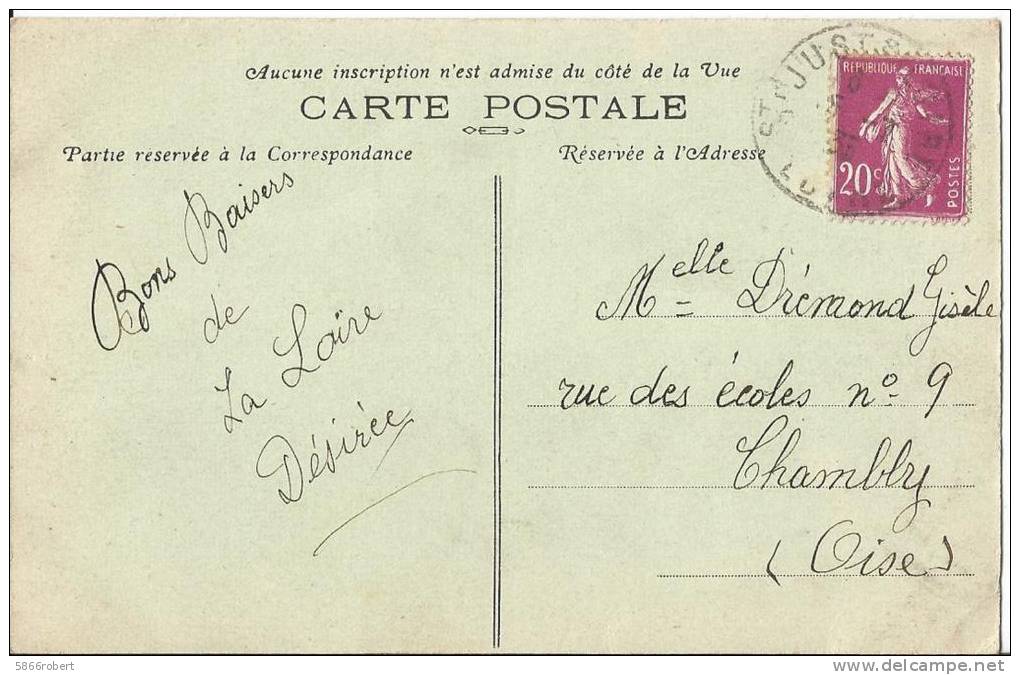 Aucune inscription n'est admise du côté de la Vue
CARTE POSTALE
Partie reservée à la Correspondance
Réservée à l'Adresse
REPUBLIQUE FRANÇAISE
20c
POSTES
ST JUST
LOIRE
Bons Baisers
de
La Loire
Désirée
Melle Drémond Gisèle
rue des écoles no 9
Chambly
(Oise)
5866robert
delcampe.net